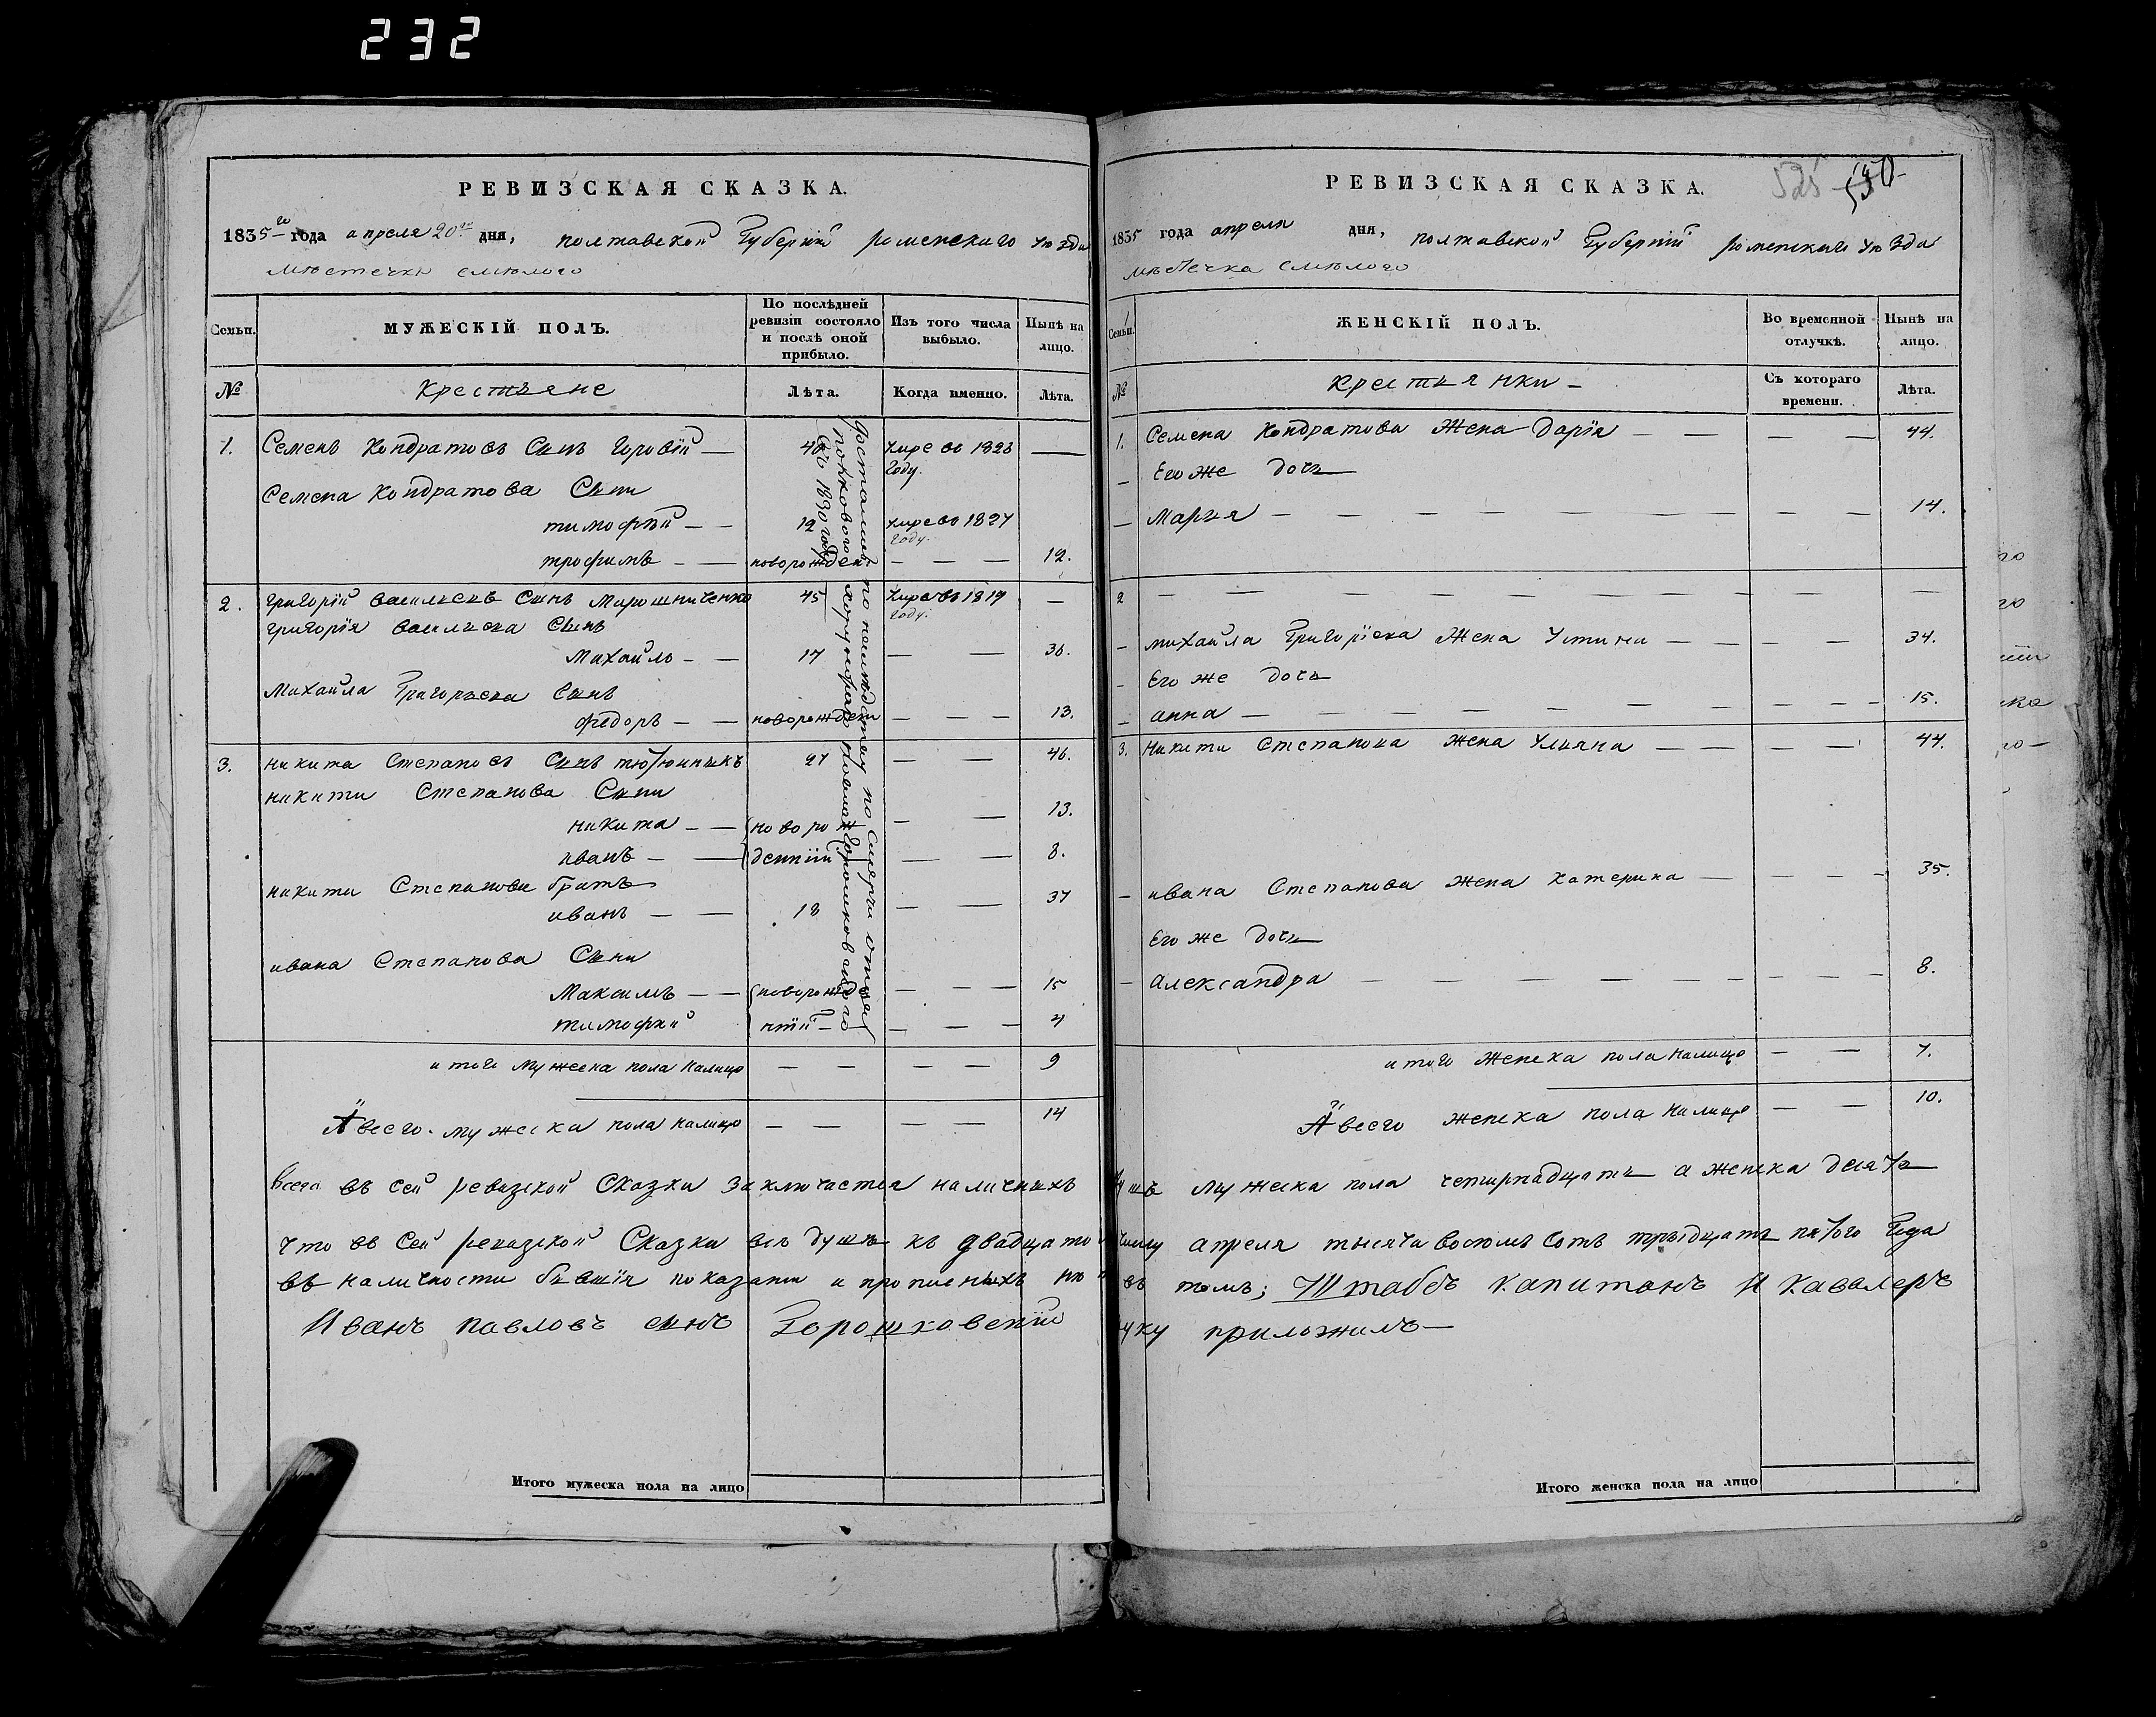 232
РЕВИЗСКАЯ СКАЗКА.
1835го года апреля 20го дня, полтавской Губернии роменского уезда
местечка смелого
Семьи.
МУЖЕСКІЙ ПОЛЪ.
По послѣдней ревизіи состояло и послѣ оной прибыло.
Изъ того числа выбыло.
Нынѣ на лицо.
№
крестьяне
Лѣта.
Когда именно.
Лѣта.
1. Семенъ Кондратовъ Сынъ — 48 умре во 1828 году. —
Семена Кондратова Сыни
тимофѣй — — 12 умре во 1827 году.
трофимъ — — новорожден — — — 12.
2. григорій василиевъ Сынъ Мирошниченко 45 умре въ 1819 году. —
григорія василиева Сынъ
Михайло — — 17 — — 36.
Михайла Григорьева Сынъ
федоръ — — новорожден — — — 13.
3. никита Степановъ Сынъ тютюнникъ 27 — — 46.
никити Степанова Сыни
никита — — (новорож — — 13.
иванъ — — денніи — — 8.
никити Степанова братъ
иванъ — — 18 — — 37
ивана Степанова Сыни
Максимъ — — (новорожде — — — 15
тимофѣй нніи — — — — 4
Достались по наследству по смерти отца
полкового хорунжого Павла Горошковского
съ 1830 году
итого мужеска пола налицо — — — — 9
А всего мужеска пола налицо — — — — 14
РЕВИЗСКАЯ СКАЗКА.
525
1835 года апреля дня, полтавской Губерніи роменскиго уезда
местечка смелого
Семьи.
ЖЕНСКІЙ ПОЛЪ.
Во временной отлучкѣ.
Нынѣ на лицо.
№
крестьянки —
Съ котораго времени.
Лѣта.
1. Семена Кондратова Жена Дарія — — — — 44.
— Его же дочь
— Мария — — — — — — — — 14.
2 — — — — — — — — —
— михайла Григоріева Жена Устина — — — — 34.
— Его же дочь
— анна — — — — — — — — — 15.
3. никити Степанова жена Улияна — — — — 44.
— ивана Степанова жена катерина — — — — 35.
Его же дочь
— Александра — — — — — — — — 8.
итого женска пола налицо — — 7.
А всего женска пола налицо — — 10.
Всего въ сей ревизской Сказки заключается наличныхъ душъ мужеска пола четирнадцать а женска десять
что въ Сей ревизской Сказки все душѣ къ двадцатому числу апреля тысяча восемь сотъ тридцать пятого Года
въ наличности бывшія показани и прописныхъ нѣтъ въ томъ; Штабсъ капитанъ И кавалеръ
Иванъ павловъ сынъ Горошковскій руку приложилъ —
Итого мужеска пола на лицо
Итого женска пола на лицо